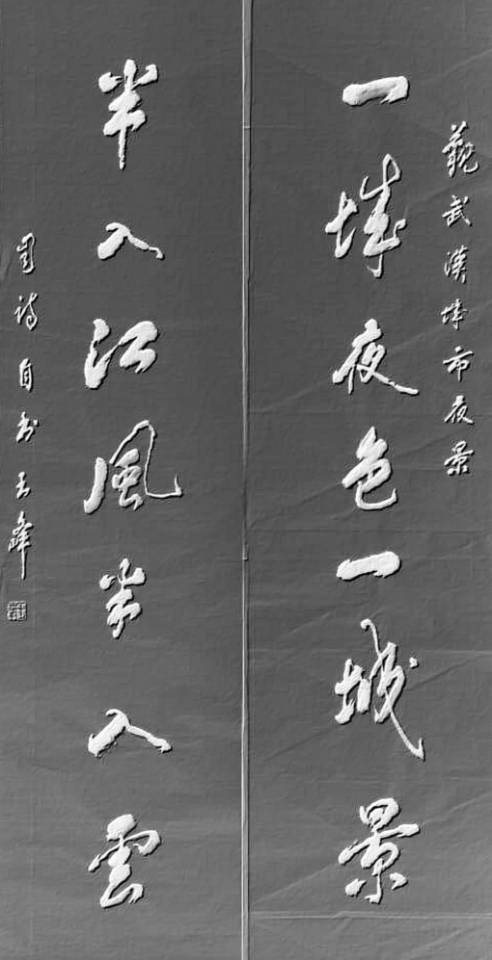 觀武漢城市夜景
一城夜色一城景
半入江風半入雲
詩自書玉峰